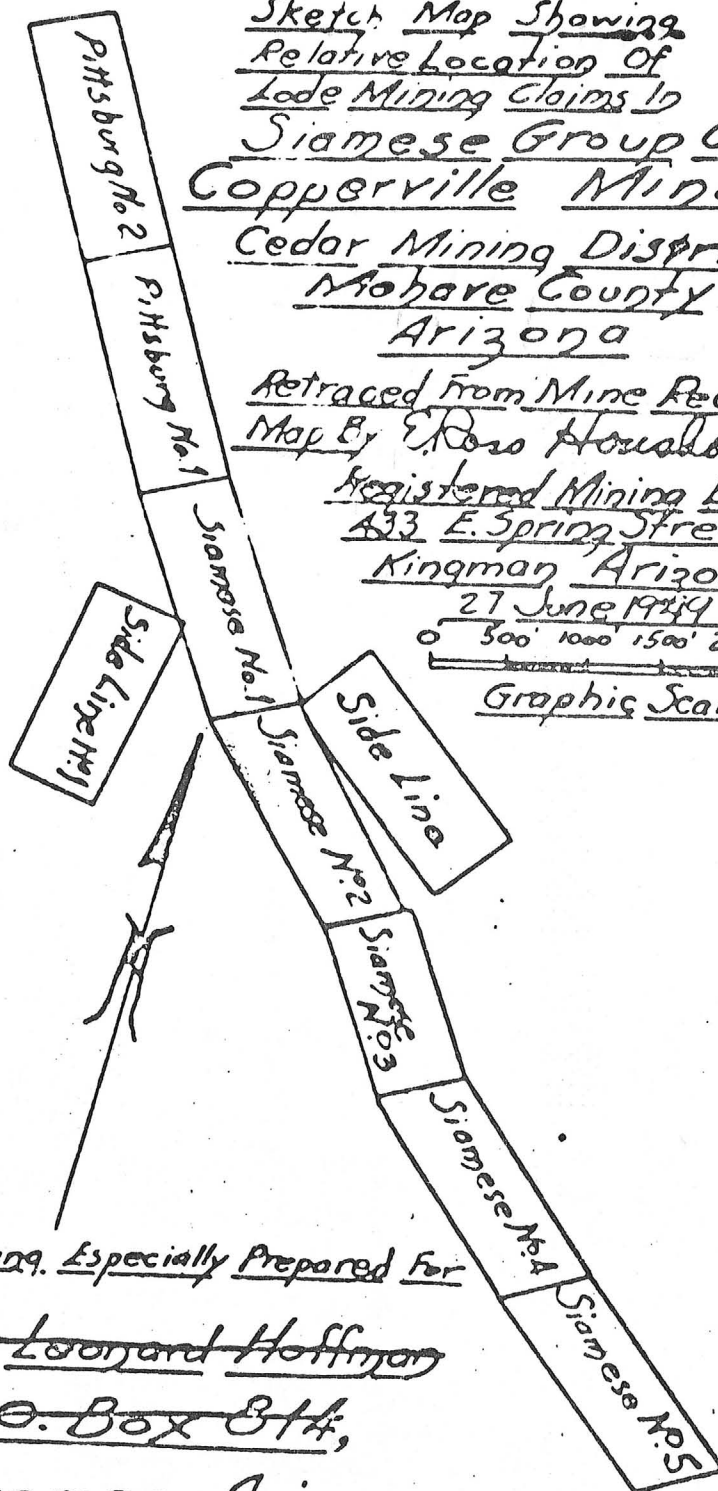 Sketch Map Showing
Relative Location Of
Lode Mining Claims In
Siamese Group O
Copperville Min
Cedar Mining Distr
Mohave County
Arizona
Retraced From Mine Rec
Map By E. Ross Househo
Registered Mining E
433 E. Spring Stre
Kingman Arizo
27 June 1949
0 500' 1000' 1500' 2
Graphic Scal
Pittsburg No. 2
Pittsburg No. 1
Siamese No. 1
Side Line No. 1
Side Line
Siamese No. 2
Siamese
No. 3
Siamese No. 4
Siamese No. 5
Especially Prepared For
Leonard Hoffman
O. Box 814,